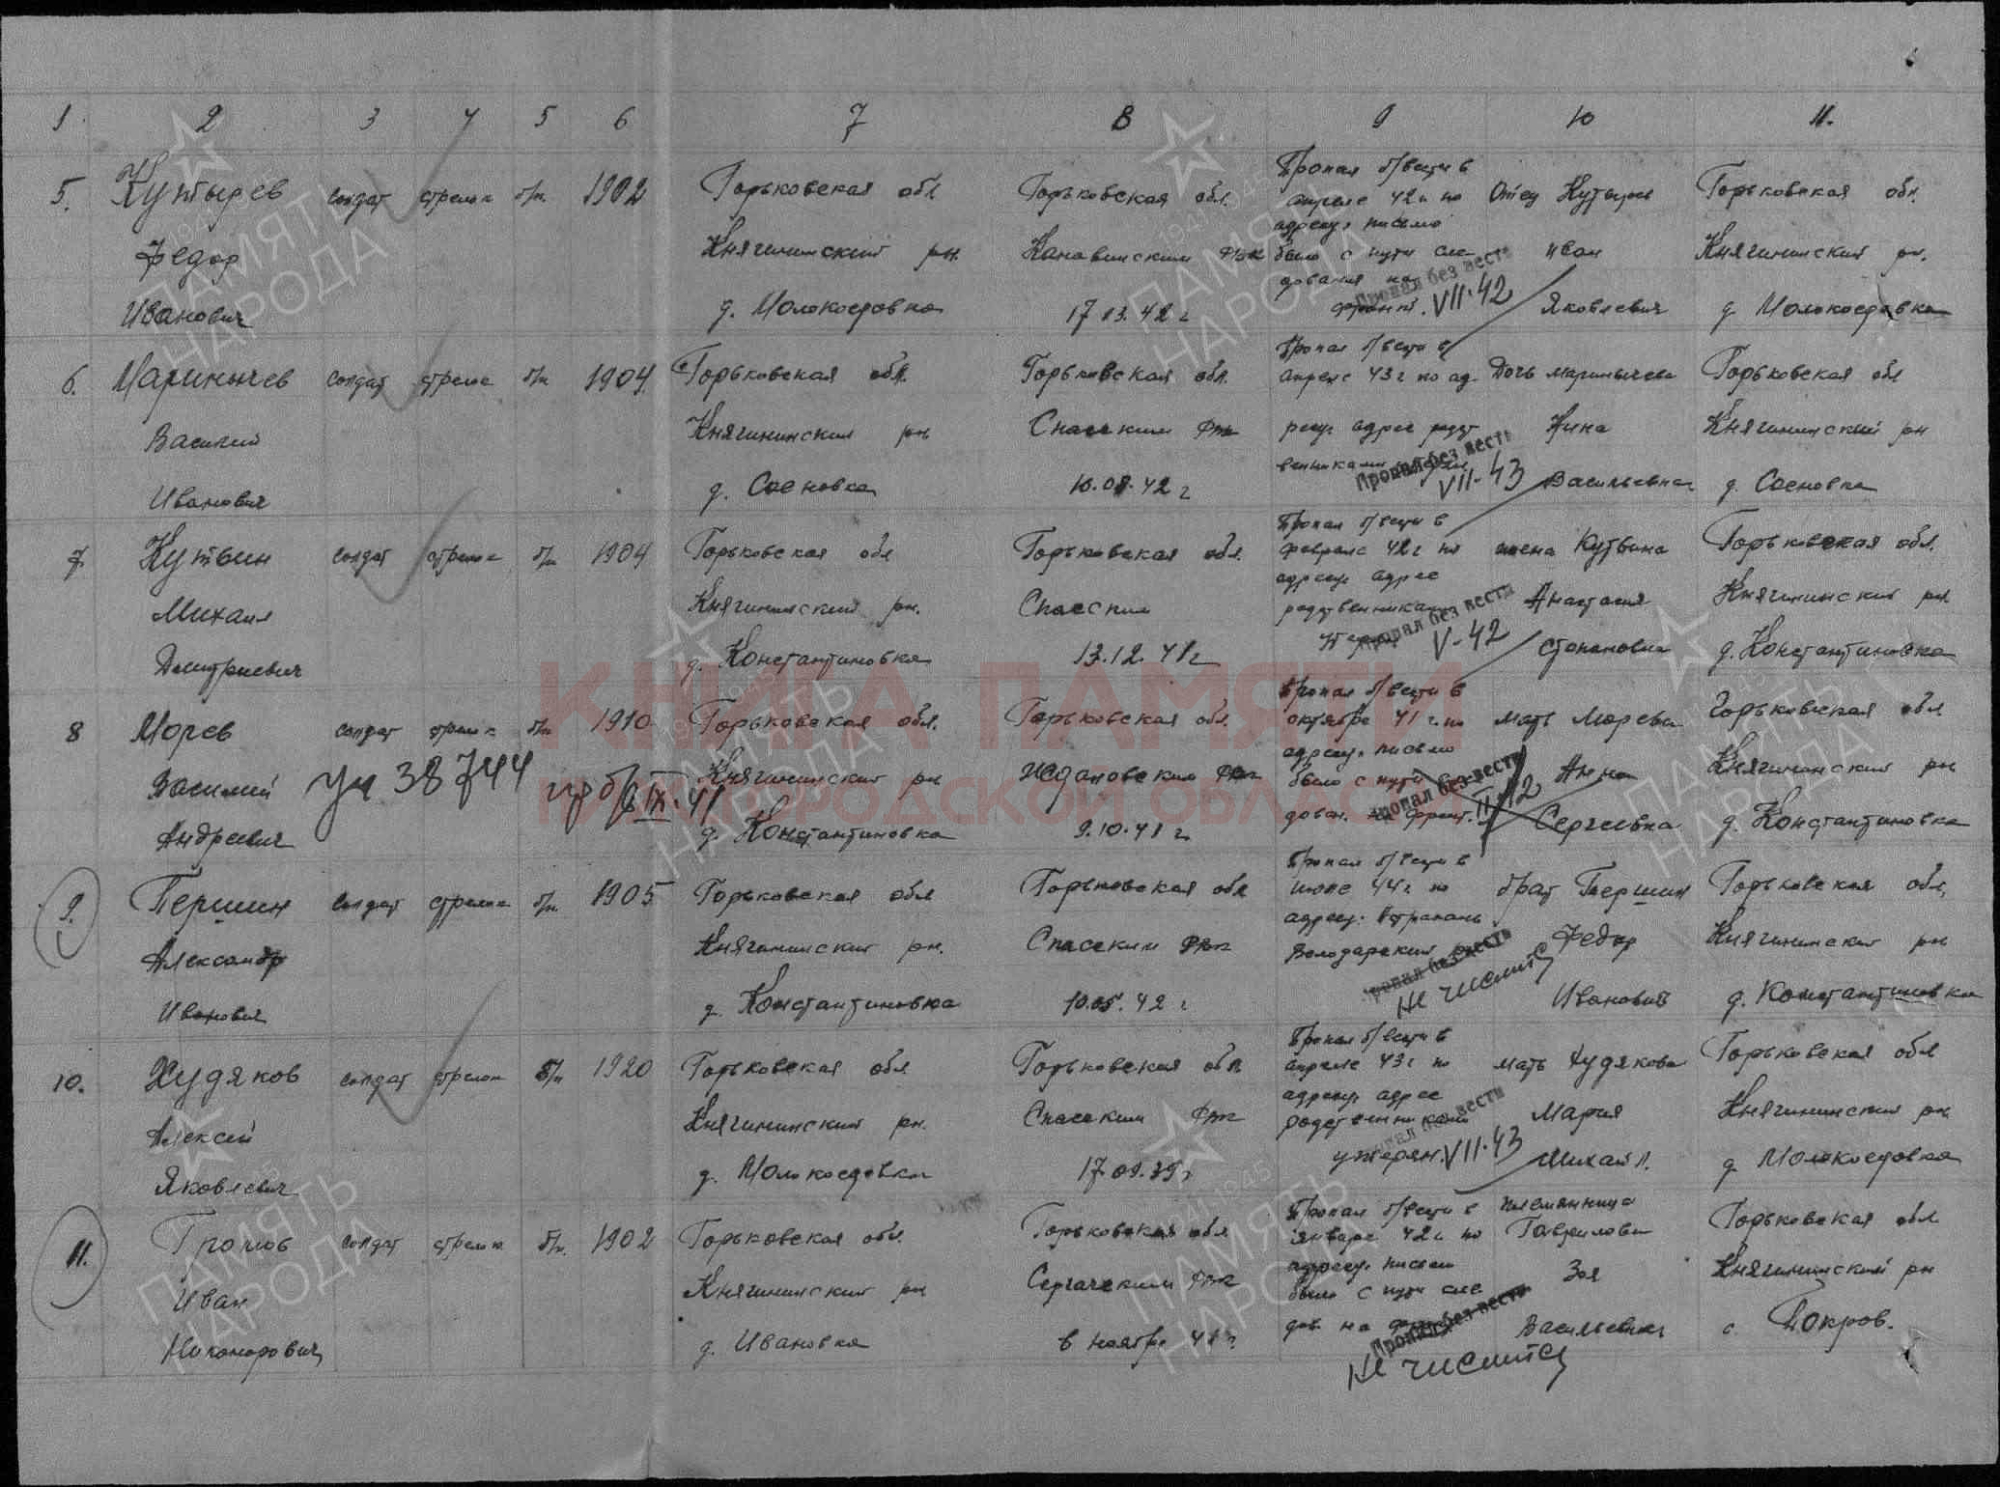 1 2 3 4 5 6 7 8 9 10 11.
5. Кутырев солдат стрелок б/п 1902 Горьковская обл Горьковская обл. Пропал б/вести в апреле 42 г. по Отец Кутырев Горьковская обл.
адресу. письмо
Федор Княгининский рн. Канавинским РВК было с пути сле- Иван Княгининский рн.
дования на
Пропал без вести
Иванович д. Молокоедовка 17 03. 42 г фронт. VII-42 Яковлевич д Молокоедовка
Пропал б/вести в
6. Маринычев солдат стрелок б/п 1904 Горьковская обл. Горьковская обл. апреле 43 г по ад- Дочь Маринычева Горьковская обл
Василий Княгининский рн Спасским РВК ресу. адрес родст Нина Княгининский рн
венниками Пропал без вести
Иванович д. Сосновка 42 г VII-43 Васильевна д. Сосновка
Пропал б/вести в
7 Кутвин солдат стрелок б/п 1904 Горьковская обл Горьковская обл. феврале 42 г по жена Кутвина Горьковская обл.
адресу адрес
Михаил Княгининский рн. Спасским родственниками Анастасия Княгининский рн
Пропал без вести
Дмитриевич д. Константиновка 13.12.41 г V-42 Степановна д. Константиновка
Пропал б/вести в
8 Морев солдат стрелок б/п 1910 Горьковская обл. Горьковская обл. октябре 41 г. по мать Морева Горьковская обл
адресу. письмо
Василий 38744 IX-41 Княгининский рн Ждановским РВК было с пути Анна Княгининский рн
Пропал без вести
Андреевич д. Константиновка 9.10.41 г. дован. на фронт. Сергеевна д. Константиновка
Пропал б/вести в
9. Першин солдат стрелок б/п 1905 Горьковская обл Горьковская обл июле 44 г по брат Першин Горьковская обл.
адресу. Астрахань
Александр Княгининский рн. Спасским РВК Володарский Федор Княгининский рн
Пропал без вести
Иванович д. Константиновка 10.05.42 г не числится Иванович д. Константиновка
Пропал б/вести в
10. Худяков солдат стрелок б/п 1920 Горьковская обл Горьковская обл апреле 43 г по мать Худякова Горьковская обл
адресу. адрес
Алексей Княгининский рн. Спасским РВК родственниками Мария Княгининский рн
Пропал без вести
Яковлевич д. Молокоедовка 17.09.39 г утерян. VII-43 Михайл. д Молокоедовка
Пропал б/вести в племянница
11. Громов солдат стрелок б/п. 1902 Горьковская обл. Горьковская обл январе 42 г. по Гаврилова Горьковская обл
адресу. письмо
Иван Княгининский рн Сергачским РВК было с пути сле Зоя Княгининский рн
Никонорович д. Ивановка в ноябре 41 г. дов. на фронт Васильевна с. Покров.
Пропал без вести
не числится
КНИГА ПАМЯТИ
НИЖЕГОРОДСКОЙ ОБЛАСТИ
ПАМЯТЬ
НАРОДА